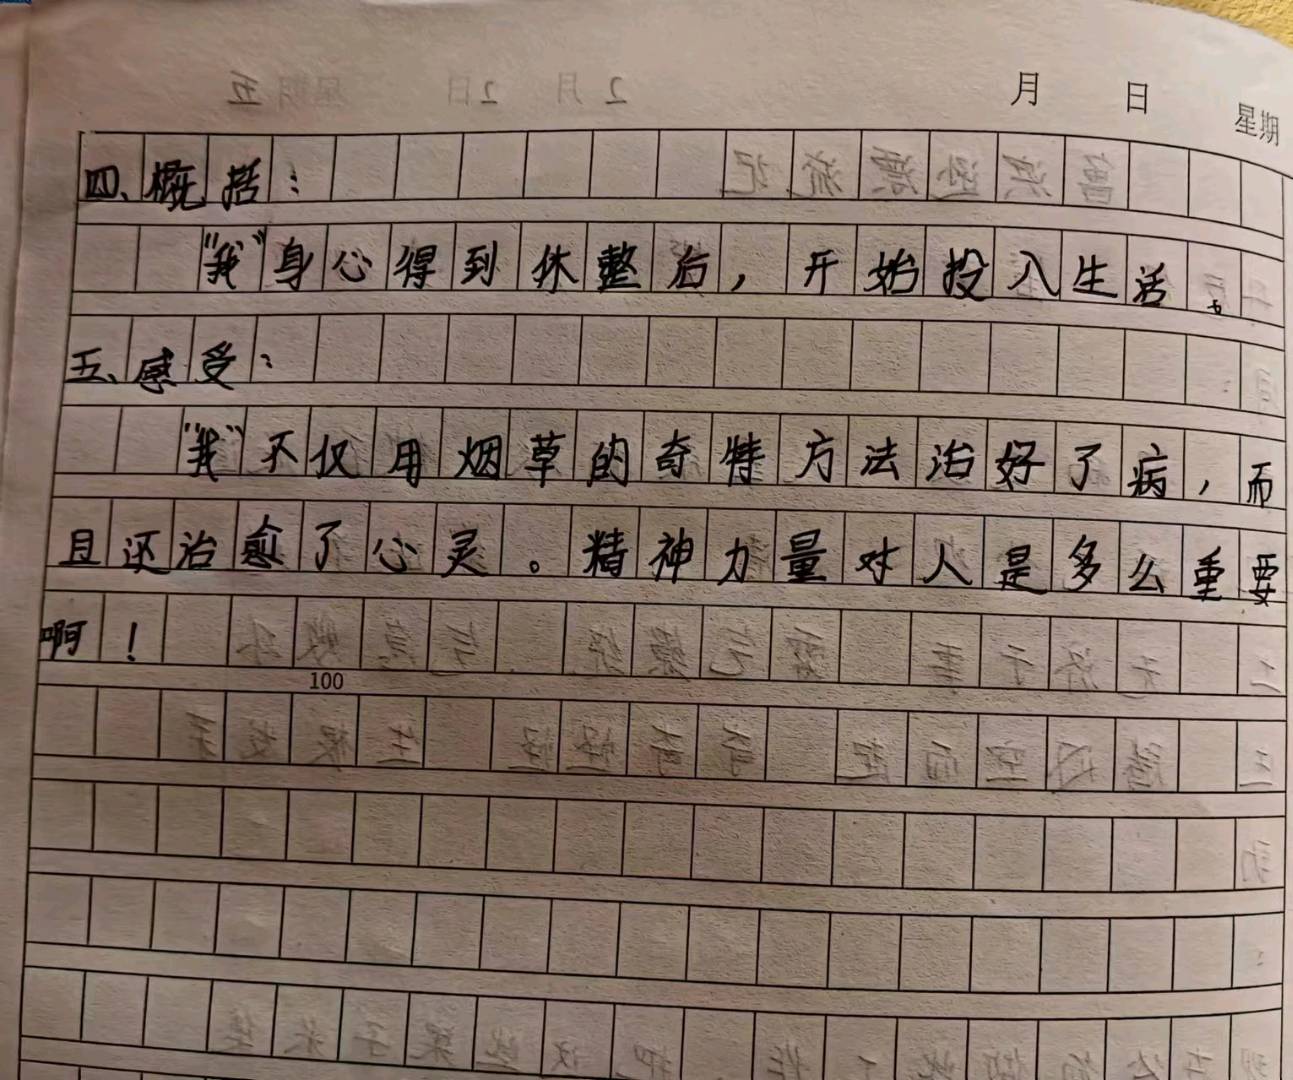 月 日 星期
四、概括：
“我”身心得到休整后，开始投入生活。
五、感受：
“我”不仅用烟草的奇特方法治好了病，而
且还治愈了心灵。精神力量对人是多么重要
啊！
100